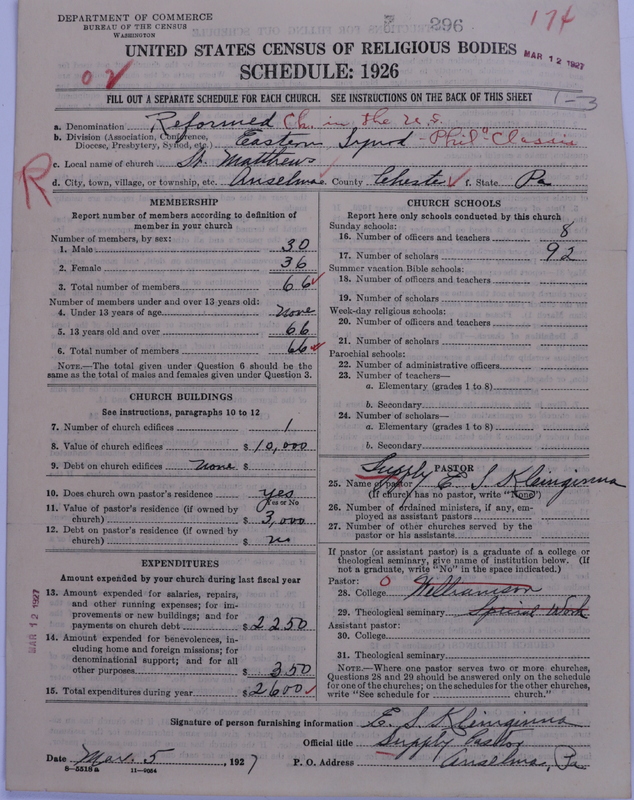 DEPARTMENT OF COMMERCE
BUREAU OF THE CENSUS
WASHINGTON
296
174
UNITED STATES CENSUS OF RELIGIOUS BODIES
MAR 12 1927
SCHEDULE: 1926
FILL OUT A SEPARATE SCHEDULE FOR EACH CHURCH. SEE INSTRUCTIONS ON THE BACK OF THIS SHEET
1-3
a. Denomination Reformed Ch. in the U.S.
b. Division (Association, Conference, Diocese, Presbytery, Synod, etc.) Eastern Synod - Phila Classis
c. Local name of church St. Matthews
d. City, town, village, or township, etc. Anselma County Chester f. State Pa
R
MEMBERSHIP
Report number of members according to definition of
member in your church
Number of members, by sex:
1. Male 30
2. Female 36
3. Total number of members 66
Number of members under and over 13 years old:
4. Under 13 years of age none
5. 13 years old and over 66
6. Total number of members 66
NOTE.—The total given under Question 6 should be
same as the total of males and females given under Question 3.
CHURCH BUILDINGS
See instructions, paragraphs 10 to 12
7. Number of church edifices 1
8. Value of church edifices $ 10,000
9. Debt on church edifices none $
10. Does church own pastor's residence yes
Yes or No
11. Value of pastor's residence (if owned by
church) $ 3,000
12. Debt on pastor's residence (if owned by
church) $ no
EXPENDITURES
Amount expended by your church during last fiscal year
13. Amount expended for salaries, repairs,
and other running expenses; for im-
provements or new buildings; and for
payments on church debt $ 2250
14. Amount expended for benevolences, in-
cluding home and foreign missions; for
denominational support; and for all
other purposes $ 350
15. Total expenditures during year $ 2600
MAR 12 1927
CHURCH SCHOOLS
Report here only schools conducted by this church
Sunday schools:
16. Number of officers and teachers 8
17. Number of scholars 92
Summer vacation Bible schools:
18. Number of officers and teachers
19. Number of scholars
Week-day religious schools:
20. Number of officers and teachers
21. Number of scholars
Parochial schools:
22. Number of administrative officers
23. Number of teachers—
a. Elementary (grades 1 to 8)
b. Secondary
24. Number of scholars—
a. Elementary (grades 1 to 8)
b. Secondary
PASTOR
25. Name of pastor Supply E. S. Kleinginna
(If church has no pastor, write "None")
26. Number of ordained ministers, if any, em-
ployed as assistant pastors
27. Number of other churches served by the
pastor or his assistants
If pastor (or assistant pastor) is a graduate of a college or
theological seminary, give name of institution below. (If
not a graduate, write "No" in the space indicated.)
Pastor: 0
28. College Williamson
29. Theological seminary Special Work
Assistant pastor:
30. College
31. Theological seminary
NOTE.—Where one pastor serves two or more churches,
Questions 28 and 29 should be answered only on the schedule
for one of the churches; on the schedules for the other churches,
write "See schedule for church."
Signature of person furnishing information E. S. Kleinginna
Official title Supply Pastor
Date Mar. 5, 1927 P. O. Address Anselma, Pa.
8—5518a 11—9084